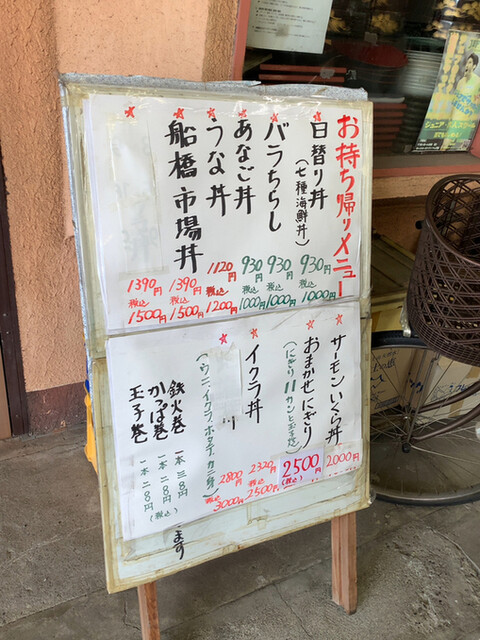 お持ち帰りメニュー
日替り丼
(七種海鮮丼)
930円
税込
1000円
バラちらし
930円
税込
1000円
あなご丼
930円
税込
1000円
うな丼
1120円
税込
1200円
船橋市場丼
1390円
税込
1500円
1390円
税込
1500円
サーモンいくら丼
2000円
おまかせにぎり
(にぎり11カンと玉子焼)
2500円
(税込)
イクラ丼
2320円
税込
2500円
(ウニ、イクラ、ホタテ、カニ身)
2800円
税込
3000円
鉄火巻 一本 三八〇円
かっぱ巻 一本 二一八〇円
玉子巻 一本 二八〇円
(税込)
ます